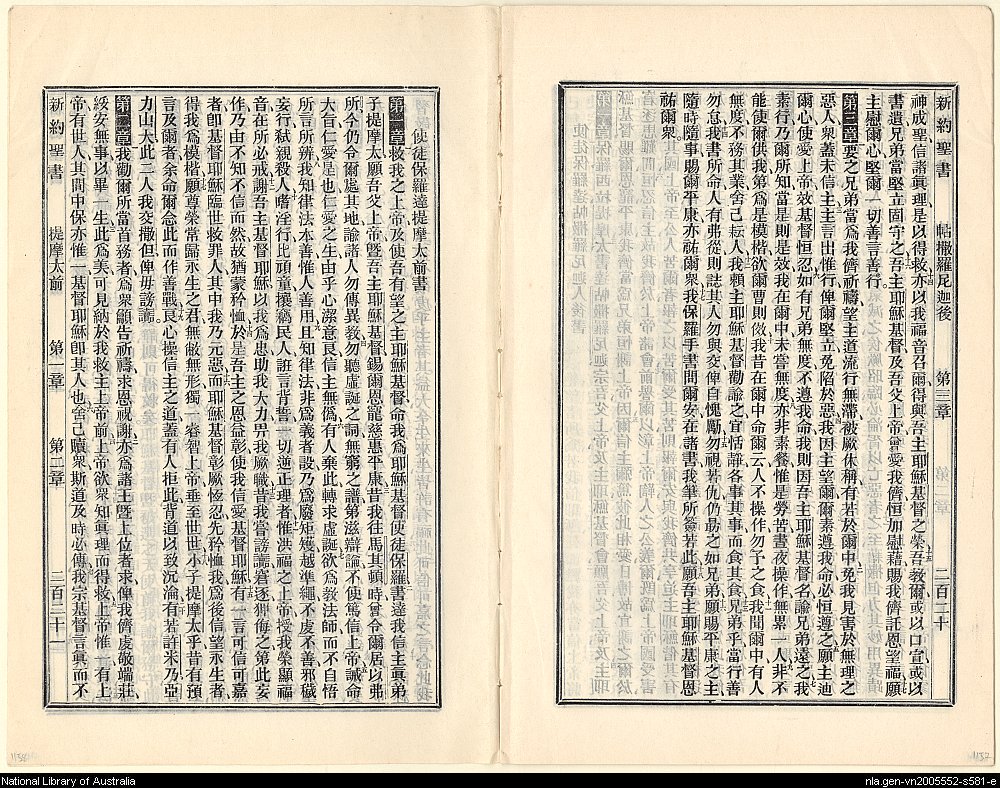 新約聖書 帖撒羅尼迦後 第三章 二百二十
神成聖信諸眞理是以得救亦以我福音召爾得與吾主耶穌基督之榮吾教爾或以口宣或以
書遺兄弟當堅立固守之吾主耶穌基督及吾父上帝曾愛我儕恒加慰藉賜我儕託恩望福願
主慰爾心堅爾一切善言善行
第三章要之兄弟當爲我儕祈禱望主道流行無滯被厥休稱有若於爾中免我見害於無理之
惡人衆蓋未信主主言出惟行俾爾堅立免陷於惡我因主望爾爾素遵我命必恒遵之願主迪
爾心使愛上帝效基督恒忍如有兄弟無度不遵我命我則因吾主耶穌基督名諭兄弟遠之我
素行乃爾所知當是則是效我在爾中未嘗無度亦非素餐惟是勞苦晝夜操作無累一人非不
能使爾供我第爲是模楷欲爾曹則傚我昔在爾中命爾云人不操作勿予之食我聞爾中有人
無度不務其業舍己耘人我賴主耶穌基督勸諭之宜恬靜各事其事而食其食兄弟乎當行善
勿怠我書所命人有弗從則誌其人勿與交俾自愧勵勿視若仇仍勗之如兄弟願賜平康之主
隨時隨事賜爾平康亦祐爾衆我保羅手書問爾安在諸書我筆所簽若此願吾主耶穌基督恩
祐爾衆
使徒保羅達提摩太前書
第一章救我之上帝及使吾有望之主耶穌基督命我爲耶穌基督使徒保羅書達我信主眞弟
子提摩太願吾父上帝曁吾主耶穌基督錫爾恩寵慈惠平康昔我往馬其頓時曾令爾居以弗
所今仍令爾處其地諭諸人勿傳異教勿聽虛誕之詞無窮之譜第滋辯論不使篤信上帝誡命
大旨仁愛是也仁愛之生由乎心潔意良信主無僞有人棄此轉求虛誕欲爲教法師而不自悟
所言所辨我知律法本善惟人善用且知律法非爲義者設乃爲廢矩矱越準繩不虔不善邪穢
妄行弒親殺人嗜淫行比頑童攘竊民人誑言背誓一切逆正理者惟洪福之上帝授我榮顯福
音在所必戒謝吾主基督耶穌以我爲忠助我大力畀我厥職昔我嘗謗讟窘逐狎侮之第此妄
作乃由不知不信而然故猶蒙矜恤於是吾主之恩益彰使我信愛基督耶穌有一言可信可嘉
者卽基督耶穌臨世救罪人其中我乃元惡而耶穌基督彰厥恆忍先矜恤我爲後信望永生者
得我爲模楷願尊榮常歸永生之君無敝無形獨一睿智上帝垂至世世小子提摩太乎昔有預
言及爾者余命爾念此而作善戰良心操信主之道蓋有人拒此背道以致沉淪有若許米乃亞
力山大此二人我交撒但俾毋謗讟
第二章我勸爾所當首務者爲衆籲告祈禱求恩祝謝亦爲諸王曁上位者求俾我儕虔敬端莊
綏安無事以畢一生此爲美可見納於我救主上帝前上帝欲衆知眞理而得救上帝惟一有上
帝有世人其間中保亦惟一基督耶穌卽其人也舍己贖衆斯道及時必傳我宗基督言眞而不
新約聖書 提摩太前 第一章 第二章 二百二十一
National Library of Australia
nla.gen-vn2005552-s581-e